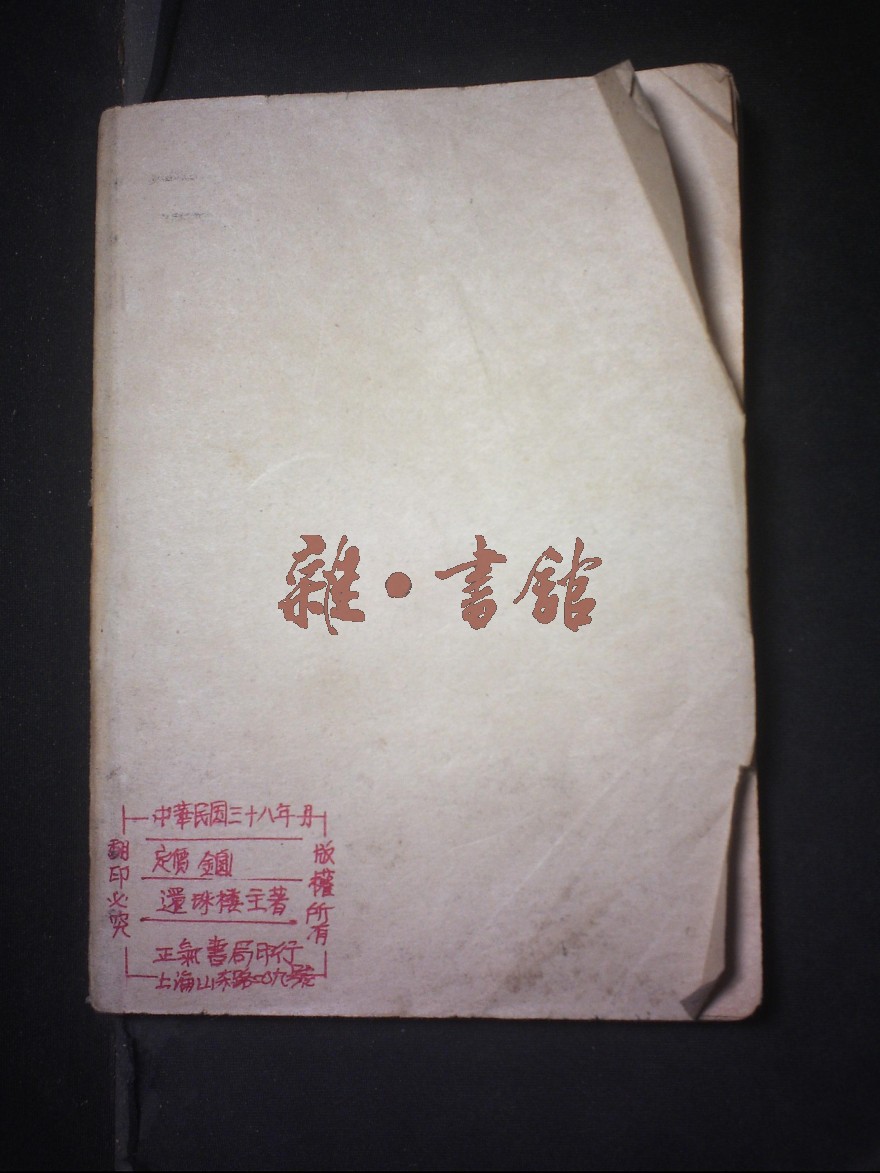 雜·書館
中華民国三十八年 月
定價 金圓
還珠樓主著
正氣書局印行
上海山东路二〇九號
版權所有
翻印必究